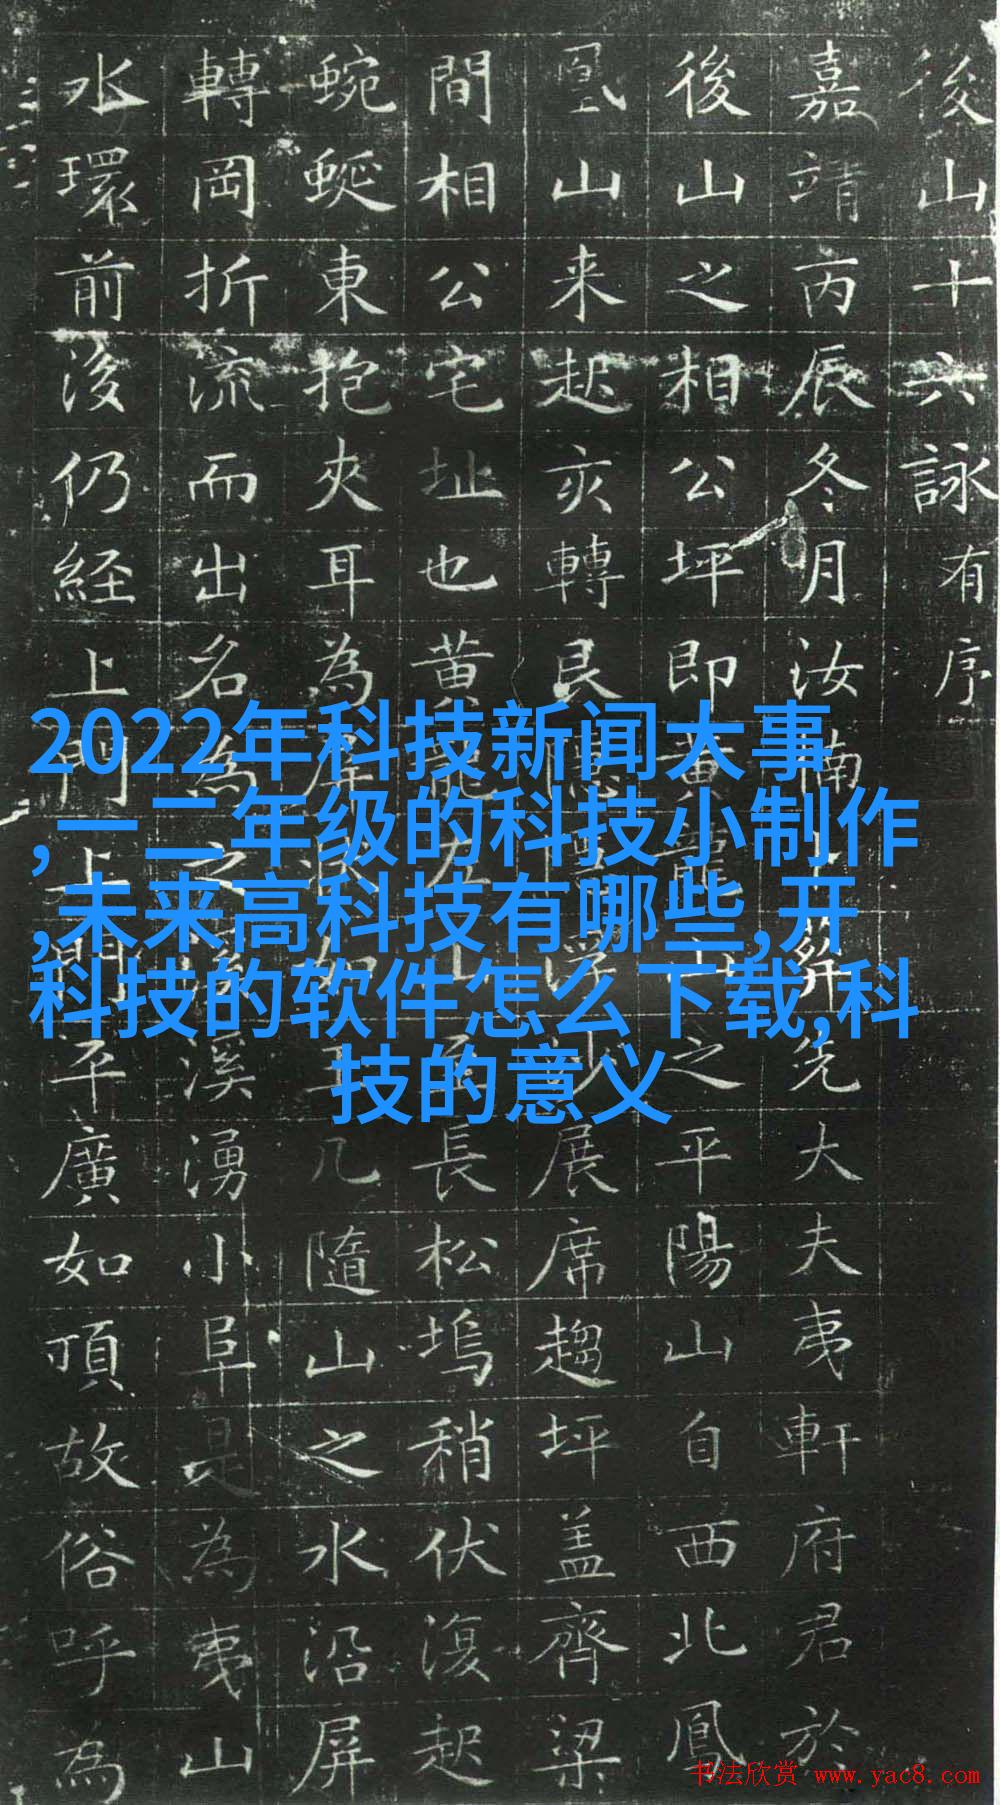 後山十六詠有序
嘉靖丙辰冬月汝葬先大夫夷軒府君於
後山之相公坪即黄龍山之平陽山自西北鳳
凰山来起亥轉艮展席趨坪盖齊梁
間相公宅址也黄山長松塢稍伏復起
蜿蜒東抱夾耳為几隨山之水沿屏
轉岡折流而出名為之溪湧小阜是為夷山
水環前後仍経上門上門平廣如頂故俗呼為
2022年科技新闻大事
,一 二年级的科技小制作
,未来高科技有哪些,开
科技的软件怎么下载,科
技的意义
书法欣赏 www.yac8.com